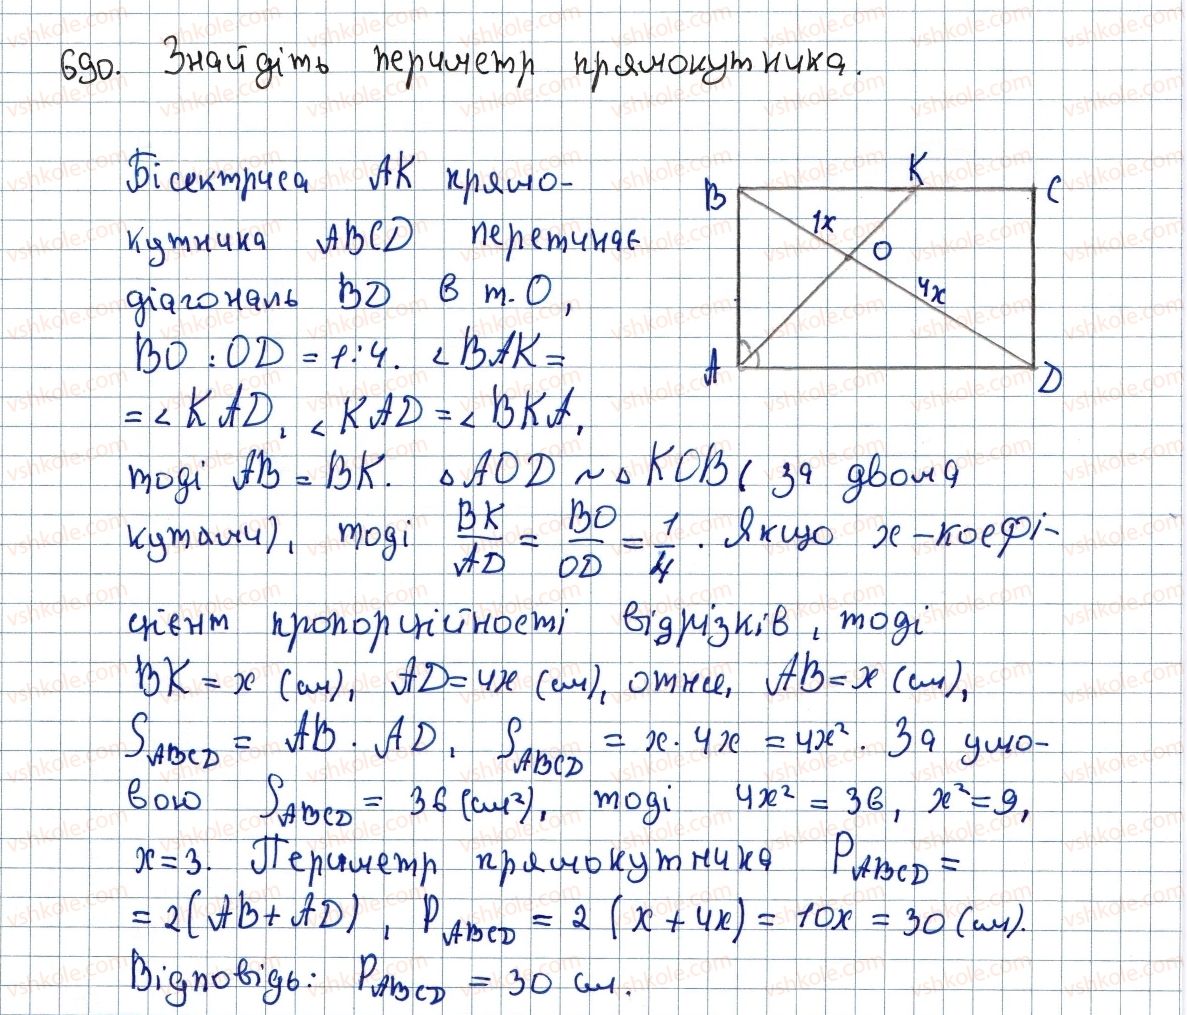 690. Знайдіть периметр прямокутника.
Бісектриса AK прямо-
кутника ABCD перетинає
діагональ BD в т. O,
BO : OD = 1:4. ∠BAK =
= ∠KAD, ∠KAD = ∠BKA,
тоді AB = BK. △AOD ~ △KOB (за двома
кутами), тоді BK/AD = BO/OD = 1/4. Якщо x – коефі-
цієнт пропорційності відрізків, тоді
BK = x (см), AD = 4x (см), отже, AB = x (см),
S_ABCD = AB · AD, S_ABCD = x · 4x = 4x². За умо-
вою S_ABCD = 36 (см²), тоді 4x² = 36, x² = 9,
x = 3. Периметр прямокутника P_ABCD =
= 2(AB + AD), P_ABCD = 2(x + 4x) = 10x = 30 (см).
Відповідь: P_ABCD = 30 см.
B K C
1x
O
4x
A D
vshkole.com